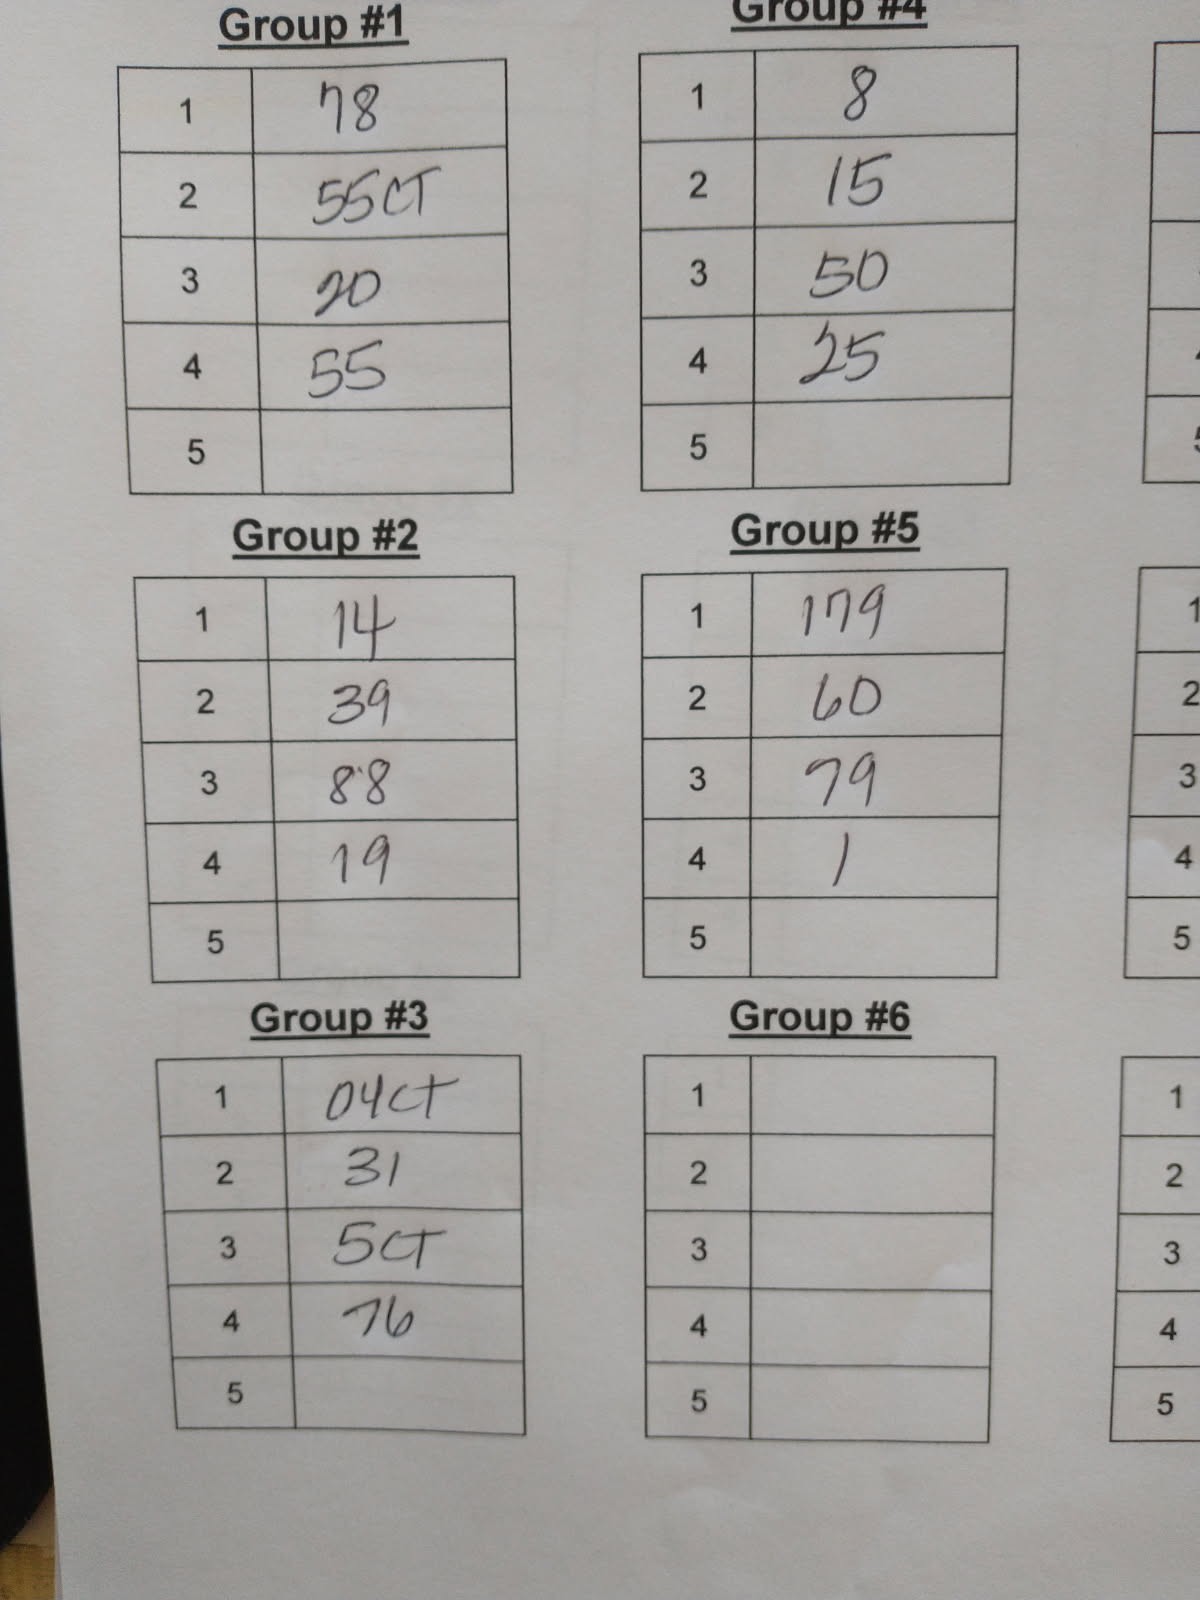 Group #1
1 78
2 55CT
3 20
4 55
5
Group #2
1 14
2 39
3 88
4 19
5
Group #3
1 04CT
2 31
3 5CT
4 76
5
Group #4
1 8
2 15
3 50
4 25
5
Group #5
1 179
2 60
3 79
4 1
5
Group #6
1
2
3
4
5
1
2
3
4
5
1
2
3
4
5